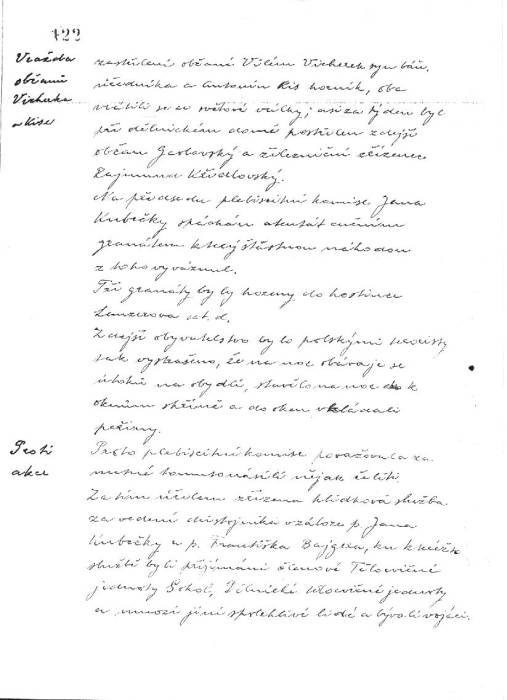 122
Vražda
občanů
Vícherka
a Kise
zastřeleni občané Vilém Vícherek syn báň.
úředníka a Antonín Kis horník, oba
vrátili se ze světové války; asi za týden byl
při dělnickém domě postřelen zdejší
občan Gaslavský a železniční zřízenec
Rajmund Křidlovský.
Na předsedu plebiscitní komise Jana
Kubečky spáchán atentát ručním
granátem který šťastnou náhodou
z toho vyváznul.
Tři granáty byly hozeny do hostince
Lanzerova at.d.
Zdejší obyvatelstvo bylo polskými teroristy
tak vystrašeno, že na noc obávaje se
útoků na obydlí, stavělo na noc k
oknům skříně a do oken vkládali
peřiny.
Proti
akce
Proto plebiscitní komise považovala za
nutné tomuto násilí nějak čeliti.
Za tím účelem zřízena hlídková služba
za vedení důstojníka v záloze p. Jana
Kubečky a p. Františka Bajgera, ku kteréžto
službě byli přijímáni členové Tělocvičné
jednoty Sokol, Dělnické tělocvičné jednoty
a mnozí jiní spolehliví lidé a bývalí vojáci.